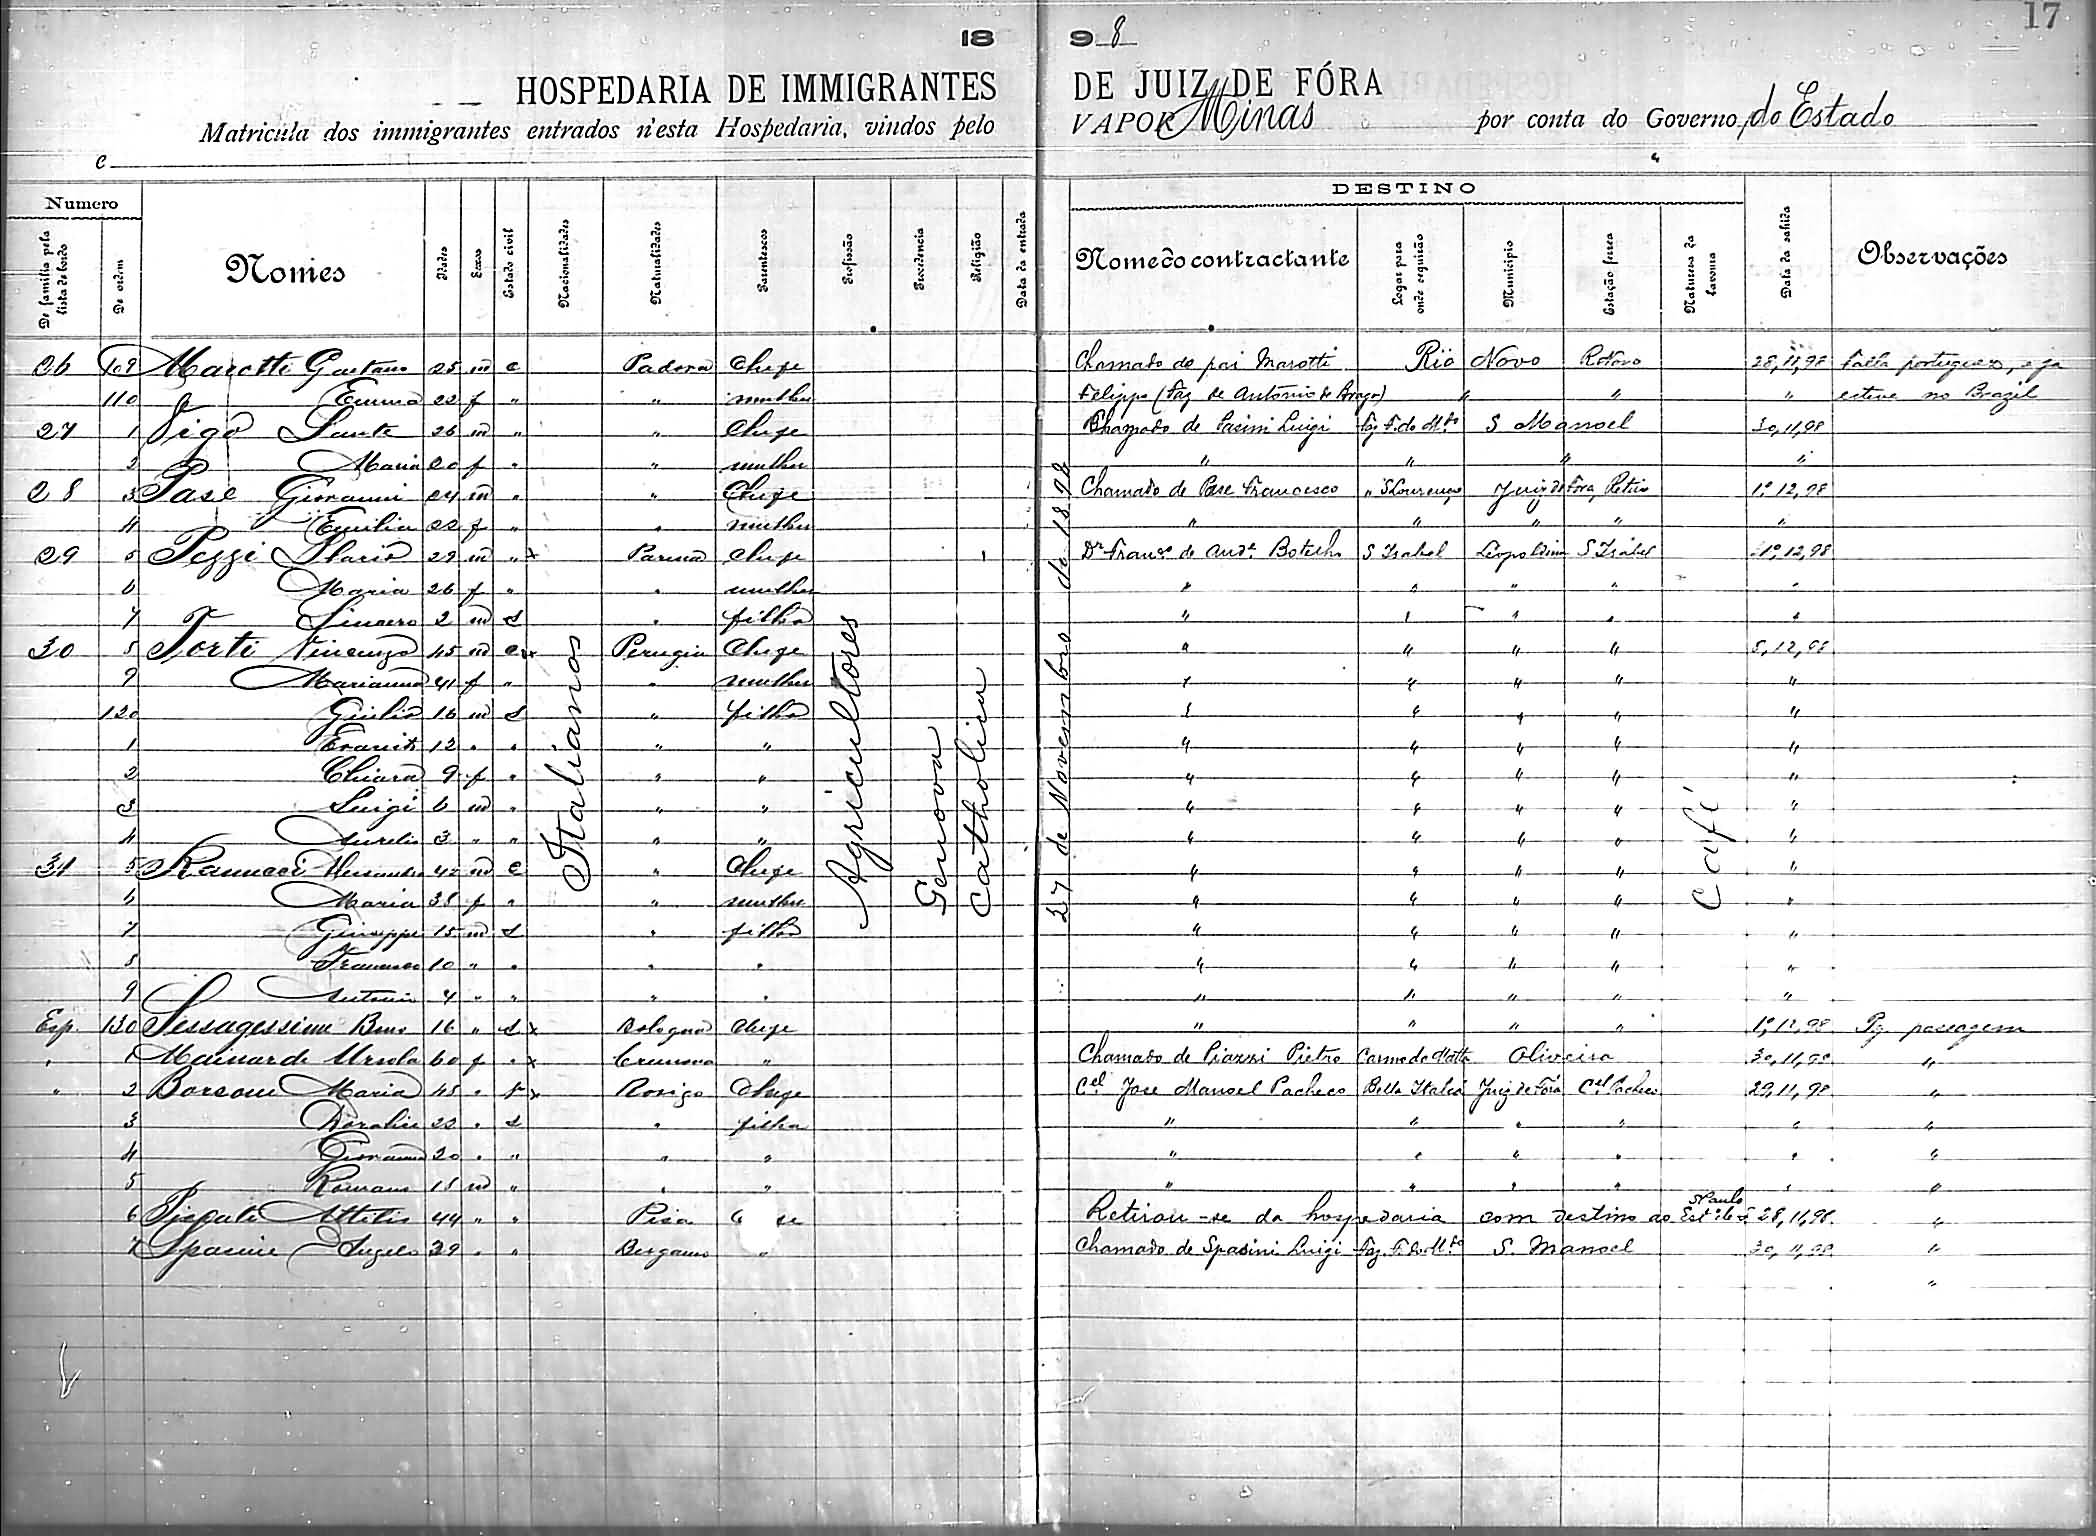 17
18 98
HOSPEDARIA DE IMMIGRANTES DE JUIZ DE FÓRA
Matricula dos immigrantes entrados n'esta Hospedaria, vindos pelo VAPOR Minas por conta do Governo do Estado
e
Numero DESTINO
De familia pela lista de bordo De ordem Nomes Idades Sexos Estado civil Nacionalidades Naturalidades Parentescos Profissão Procedencia Religião Data da entrada Nome do contractante Logar para onde seguirão Municipio Estação ferrea Natureza da lavoura Data da sahida Observações
26 109 Marotti Gaetano 25 m c Padova Chefe Chamado do pai Marotti Rio Novo R Novo 28,11,98 Falla portuguez, e ja
110 Emma 22 f " " mulher Felippe (Faz de Antonio de Araujo) " " " esteve no Brazil
27 1 Vigo Sante 26 m " " Chefe Chamado de Pacini Luigi Faz. F. do Mto S Manoel 30,11,98
2 Maria 20 f " " mulher " " " "
28 3 Pase Giovanni 24 m " " Chefe Chamado de Pase Francesco " S Lourenço Juiz de Fora Retiro 1º,12,98
4 Emilia 22 f " " mulher " " " " "
29 5 Pezzi Ilario 29 m " x Parma Chefe Dr Franco de Ande Botelho S Izabel Leopoldina S Izabel 1º,12,98
6 Maria 26 f " " mulher " " " " "
7 Sincero 2 m s " filho " " " " "
30 8 Torti Vincenzo 45 m c x Perugia Chefe " " " " 5,12,98
9 Marianna 41 f " " mulher " " " " "
120 Giulio 16 m s " filho " " " " "
1 12 " " " " " " " " "
2 Chiara 9 f " " " " " " " "
3 Luigi 6 m " " " " " " " "
4 Aurelio 3 " " " " " " " " "
31 5 Rannacci Alessandro 42 m c " Chefe " " " " "
6 Maria 38 f " " mulher " " " " "
7 Giuseppe 15 m s " filho " " " " "
8 Francesco 10 " " " " " " " " "
9 Antonio 4 " " " " " " " " "
Esp. 130 16 " s x Bologna Chefe " " " " 1º,12,98 Pg. passagem
" 1 Mainardi Ursola 60 f " x Cremona " Chamado de Piazzi Pietro Carmo da Matta Oliveira 30,11,98 "
" 2 Borsoni Maria 45 " v x Rovigo Chefe Cel Jose Manoel Pacheco Bella Italia Juiz de Fóra Cel Pacheco 29,11,98 "
3 Rosalia 22 " s " filha " " " " " "
4 Giovanna 20 " " " " " " " " " "
5 Romano 18 m " " " " " " " " "
6 Attilio 44 " " Pisa Retirou-se da hospedaria com destino ao Est. de S Paulo 28,11,98 "
7 Spasini Angelo 39 " " Bergamo " Chamado de Spasini Luigi Faz. F. do Mto S. Manoel 30,11,98 "
"
Italianos
Agricultores
Genova
Catholica
27 de Novembro de 1898
Café